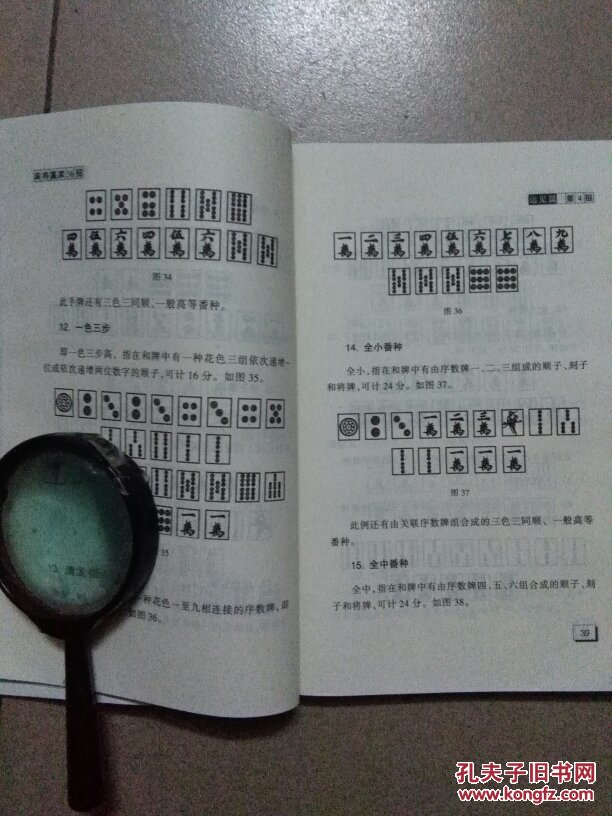 麻将赢家36招
图 34
此手牌还有三色三同顺、一般高等番种。
12. 一色三步
即一色三步高，指在和牌中有一种花色三组依次递增一
位或依次递增两位数字的顺子，可计 16 分。如图 35。
35
13. 清龙
种花色一至九相连接的序数牌，即
图 36。
第 4 招
一萬 二萬 三萬 四萬 伍萬 六萬 七萬 八萬 九萬
图 36
14. 全小番种
全小，指在和牌中有由序数牌一、二、三组成的顺子、刻子
和将牌，可计 24 分。如图 37。
一萬 二萬 三萬
一萬 一萬 一萬
图 37
此例还有由关联序数牌组合成的三色三同顺、一般高等
番种。
15. 全中番种
全中，指在和牌中有由序数牌四、五、六组合成的顺子、刻
子和将牌，可计 24 分。如图 38。
39
孔夫子旧书网
www.kongfz.com